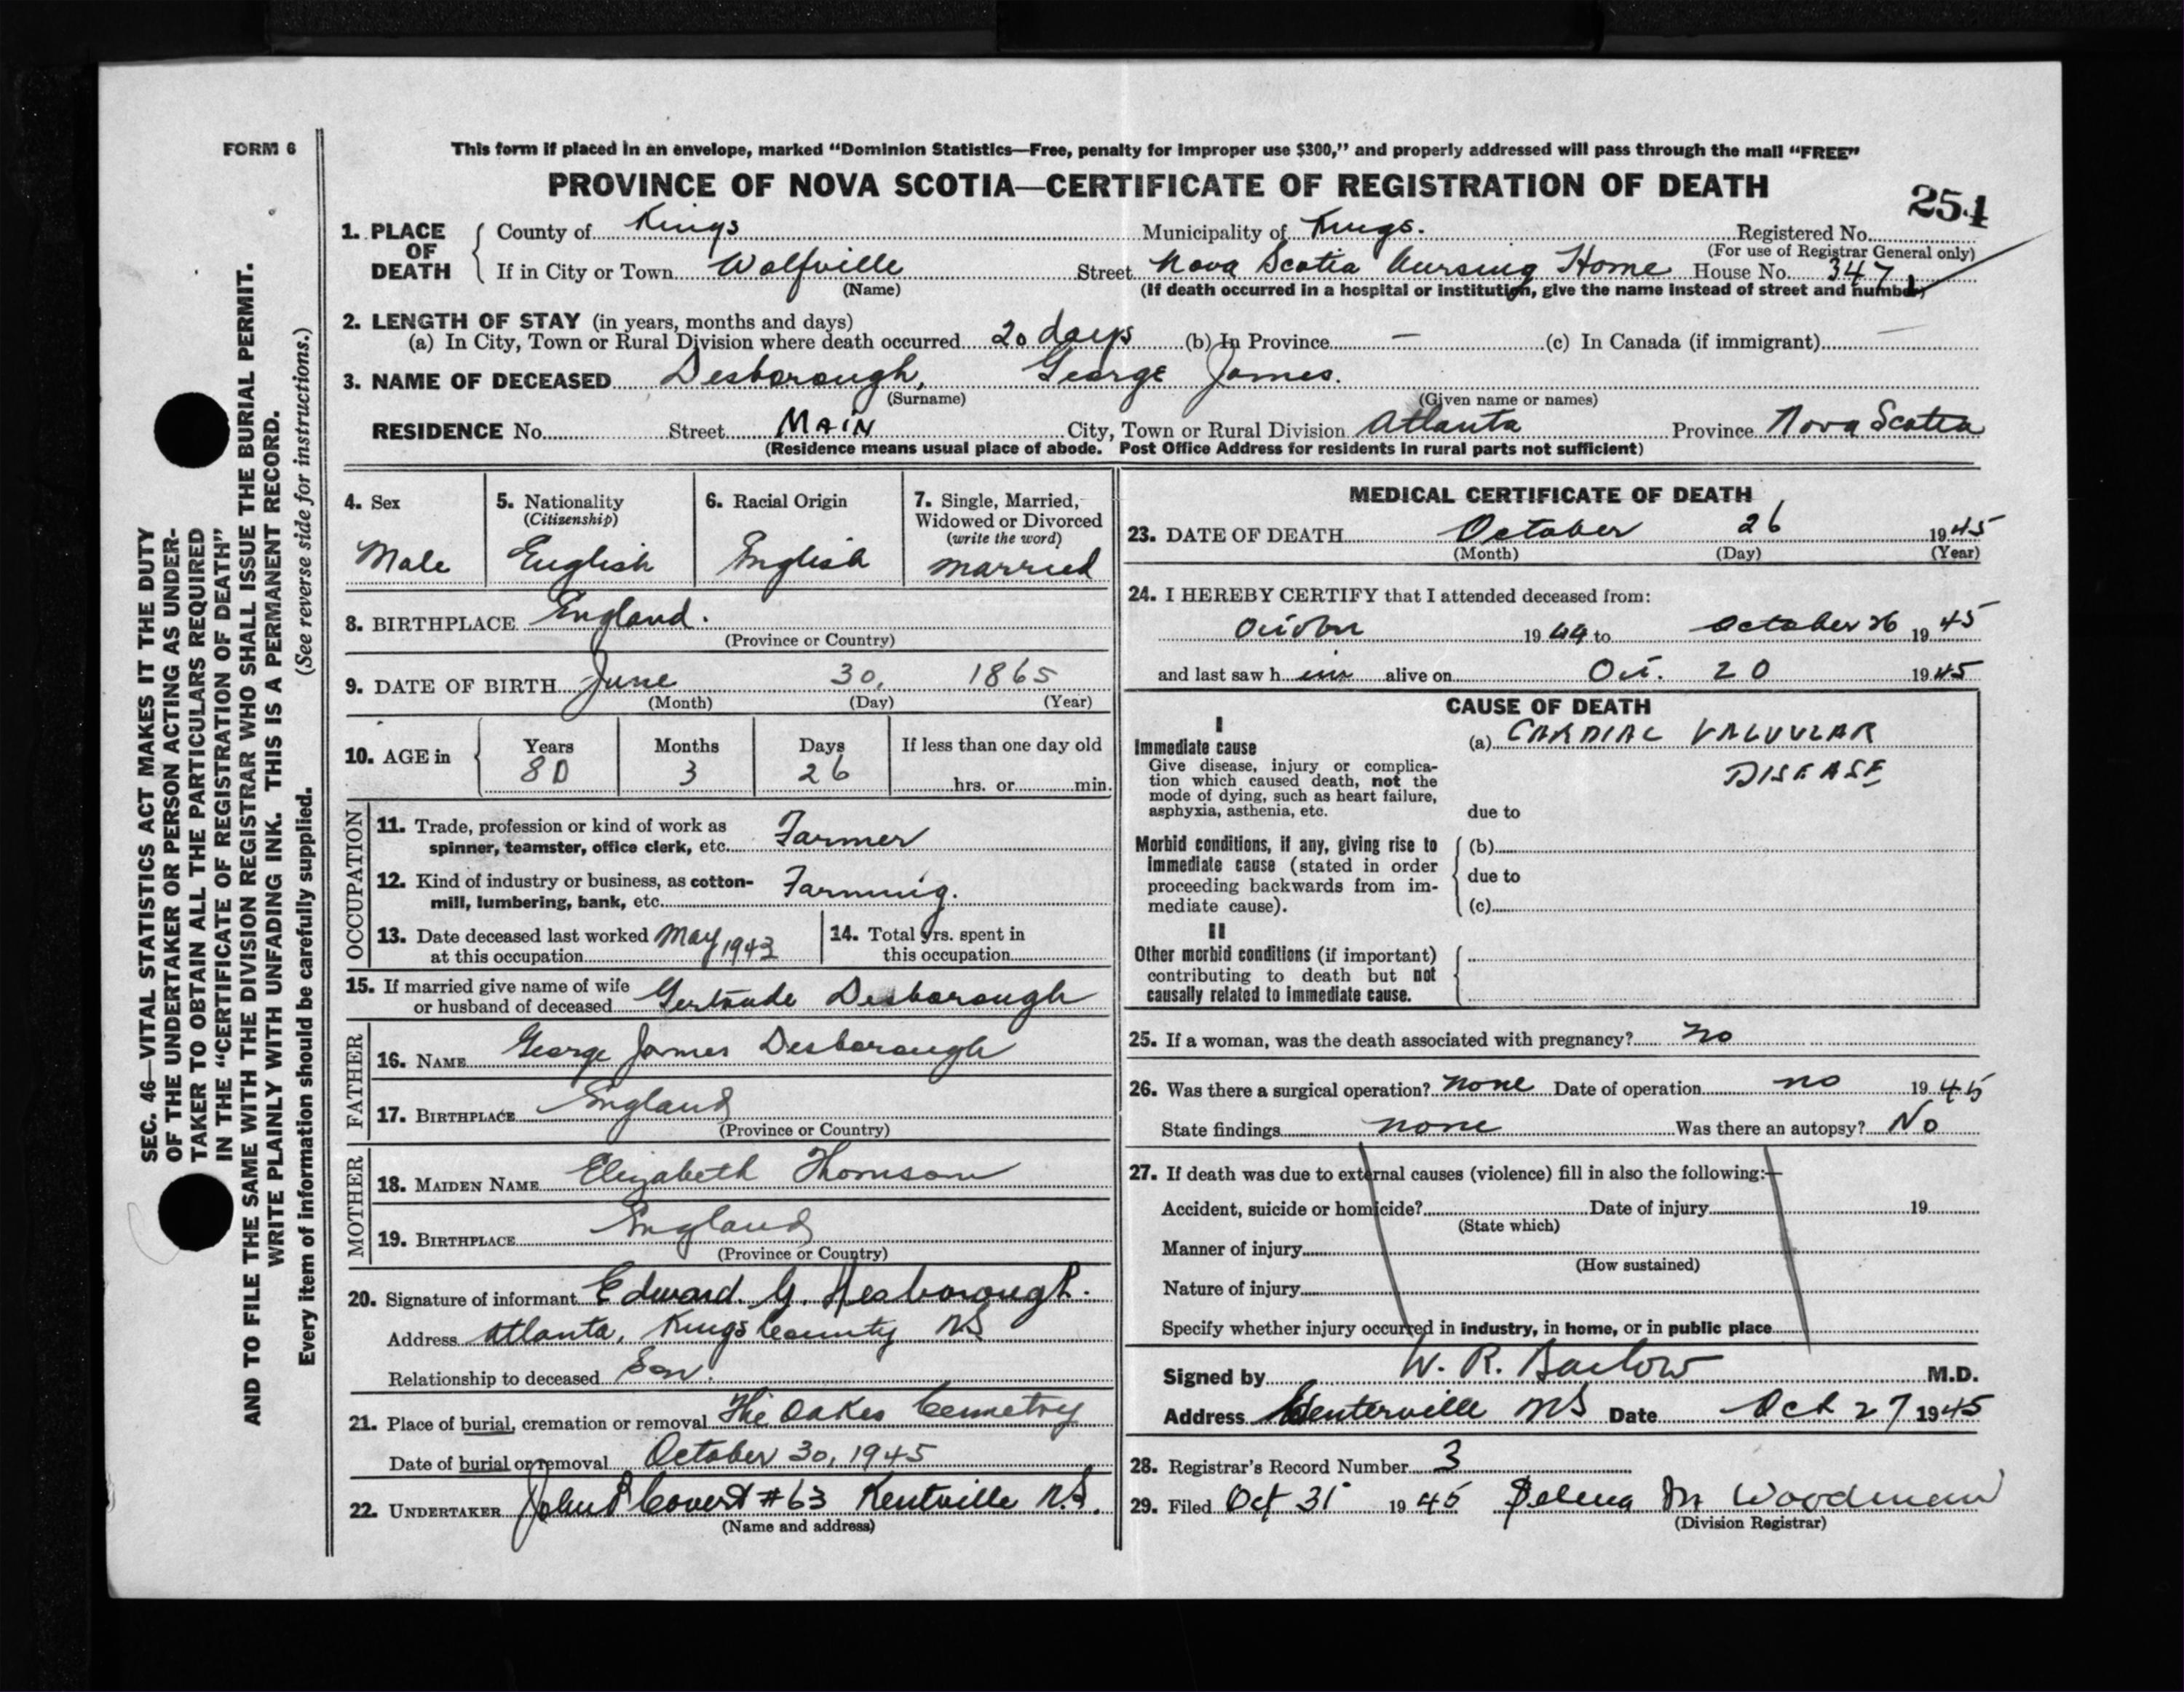 FORM 6
This form if placed in an envelope, marked "Dominion Statistics—Free, penalty for improper use $300," and properly addressed will pass through the mail "FREE"
PROVINCE OF NOVA SCOTIA—CERTIFICATE OF REGISTRATION OF DEATH
254
1. PLACE OF DEATH County of Kings Municipality of Kings. Registered No.
(For use of Registrar General only)
If in City or Town Wolfville Street Nova Scotia Nursing Home House No. 3471
(Name) (If death occurred in a hospital or institution, give the name instead of street and number)
2. LENGTH OF STAY (in years, months and days)
(a) In City, Town or Rural Division where death occurred 20 days (b) In Province — (c) In Canada (if immigrant) —
3. NAME OF DECEASED Desborough, George James.
(Surname) (Given name or names)
RESIDENCE No. Street MAIN City, Town or Rural Division Atlanta Province Nova Scotia
(Residence means usual place of abode. Post Office Address for residents in rural parts not sufficient)
4. Sex 5. Nationality (Citizenship) 6. Racial Origin 7. Single, Married, Widowed or Divorced (write the word)
Male English English married
8. BIRTHPLACE England.
(Province or Country)
9. DATE OF BIRTH June 30, 1865
(Month) (Day) (Year)
10. AGE in Years Months Days If less than one day old
80 3 26 hrs. or min.
OCCUPATION
11. Trade, profession or kind of work as Farmer
spinner, teamster, office clerk, etc.
12. Kind of industry or business, as cotton- Farming.
mill, lumbering, bank, etc.
13. Date deceased last worked May 1943 14. Total yrs. spent in
at this occupation this occupation
15. If married give name of wife
or husband of deceased Gertrude Desborough
FATHER
16. NAME George James Desborough
17. BIRTHPLACE England
(Province or Country)
MOTHER
18. MAIDEN NAME Elizabeth Thomson
19. BIRTHPLACE England
(Province or Country)
20. Signature of informant Edward G. Desborough.
Address Atlanta, Kings County NS
Relationship to deceased Son.
21. Place of burial, cremation or removal The Oakes Cemetry
Date of burial or removal October 30, 1945
22. UNDERTAKER John P Covert #63 Kentville N.S.
(Name and address)
MEDICAL CERTIFICATE OF DEATH
23. DATE OF DEATH October 26 1945
(Month) (Day) (Year)
24. I HEREBY CERTIFY that I attended deceased from:
October 1944 to October 26 1945
and last saw h im alive on Oct. 20 1945
CAUSE OF DEATH
I
Immediate cause (a) CARDIAC VALVULAR
DISEASE
Give disease, injury or complica-
tion which caused death, not the
mode of dying, such as heart failure,
asphyxia, asthenia, etc. due to
Morbid conditions, if any, giving rise to (b)
immediate cause (stated in order
proceeding backwards from im- due to
mediate cause). (c)
II
Other morbid conditions (if important)
contributing to death but not
causally related to immediate cause.
25. If a woman, was the death associated with pregnancy? no
26. Was there a surgical operation? none Date of operation no 1945
State findings none Was there an autopsy? No
27. If death was due to external causes (violence) fill in also the following:—
Accident, suicide or homicide? Date of injury 19
(State which)
Manner of injury
(How sustained)
Nature of injury
Specify whether injury occurred in industry, in home, or in public place
Signed by W. R. Barlow M.D.
Address Centerville NS Date Oct 27 1945
28. Registrar's Record Number 3
29. Filed Oct 31 1945 Selena M Woodman
(Division Registrar)
SEC. 46—VITAL STATISTICS ACT MAKES IT THE DUTY
OF THE UNDERTAKER OR PERSON ACTING AS UNDER-
TAKER TO OBTAIN ALL THE PARTICULARS REQUIRED
IN THE "CERTIFICATE OF REGISTRATION OF DEATH"
AND TO FILE THE SAME WITH THE DIVISION REGISTRAR WHO SHALL ISSUE THE BURIAL PERMIT.
WRITE PLAINLY WITH UNFADING INK. THIS IS A PERMANENT RECORD.
Every item of information should be carefully supplied. (See reverse side for instructions.)